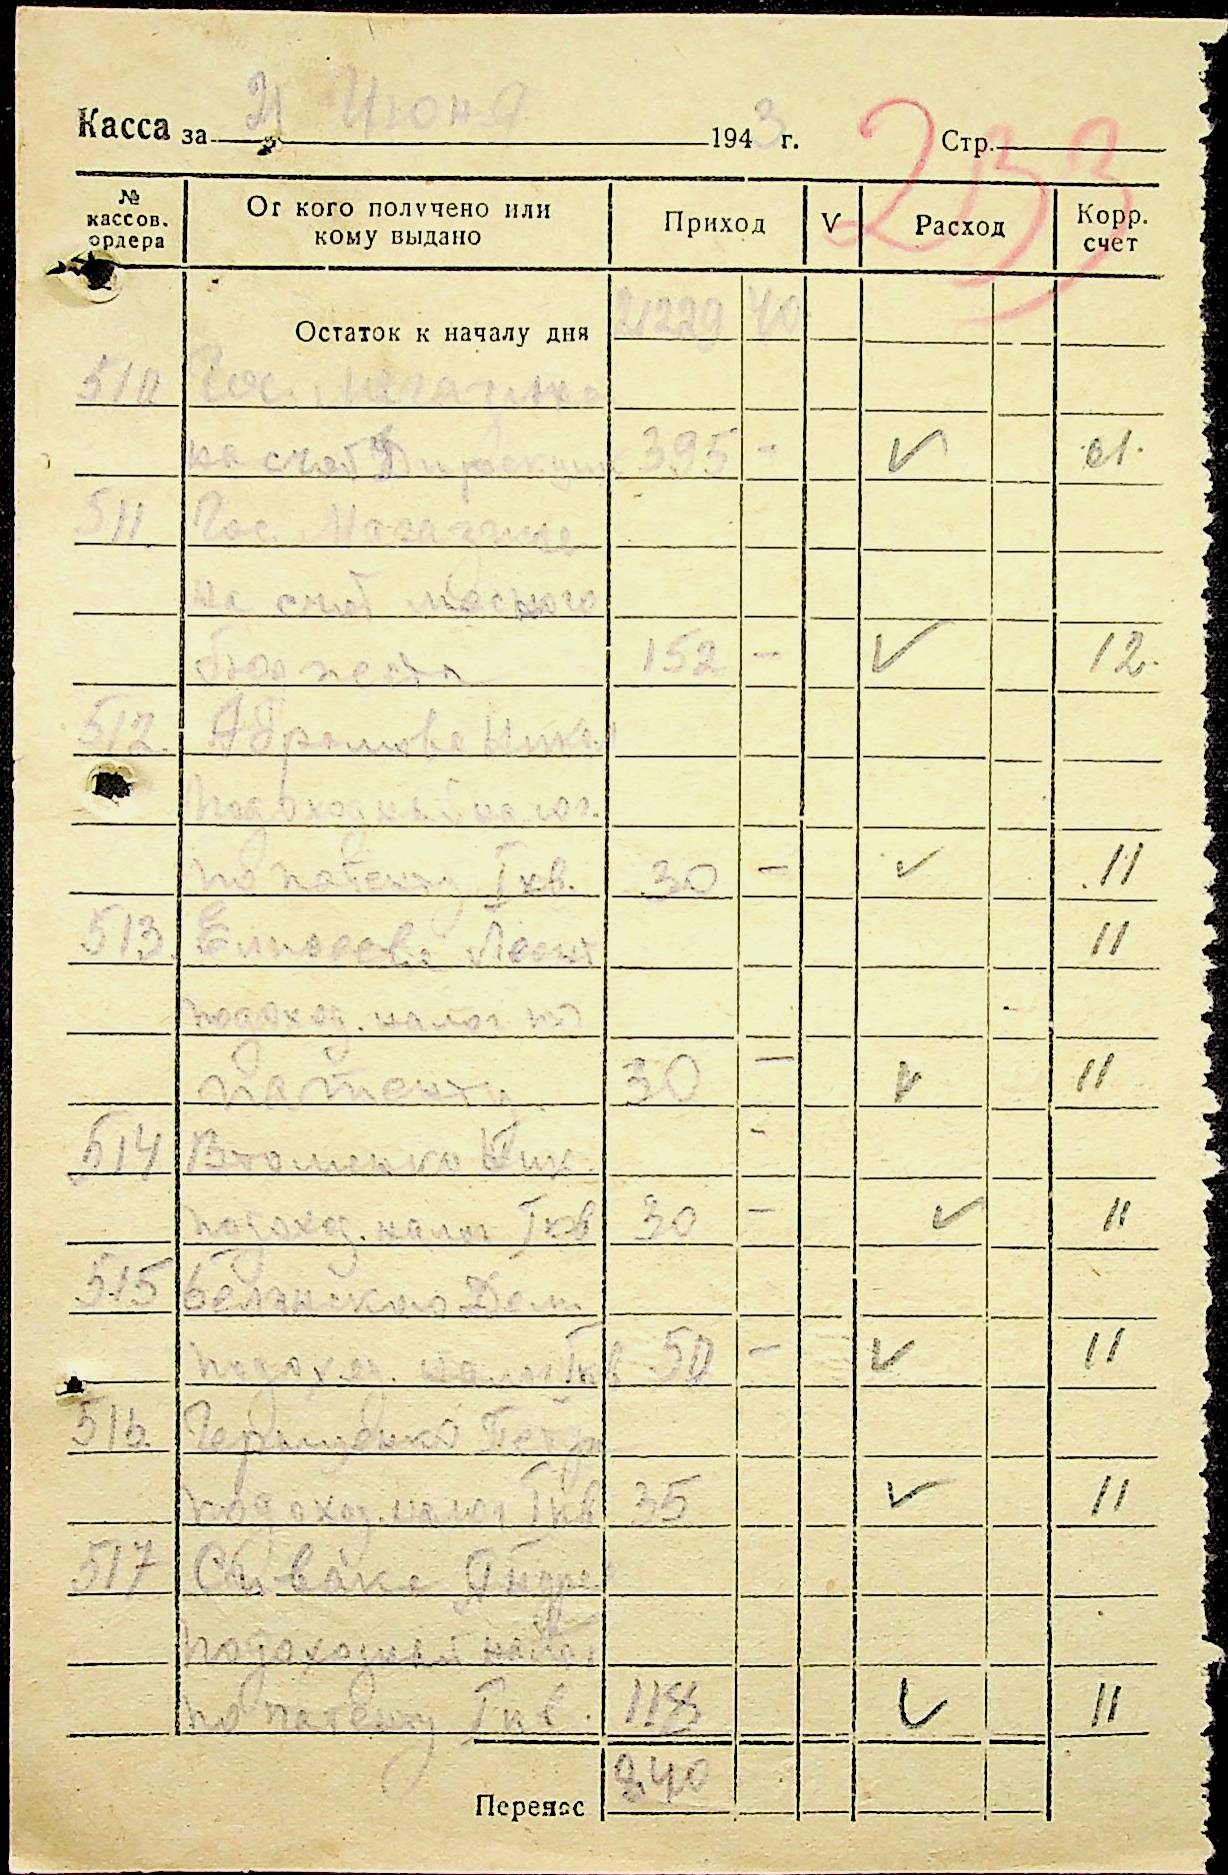 Касса за 21 Июня 1943 г. Стр. 233
№ кассов. ордера От кого получено или кому выдано Приход V Расход Корр. счет
Остаток к началу дня 21229 40
510 Гос. Магазина
на счет Дирекции 395 - ✓ 21.
511. Гос. Магазине
на счет местного
бюджета 152 - ✓ 12.
512. Абрамова Ник.
подоходный налог.
по патенту I кв. 30 - ✓ 11
513. Елисеева Леонт 11
подоход. налог по
патенту. 30 - ✓ 11
514 Вто Ник. -
подоход. налог I кв 30 - ✓ 11
515 Дем.
подоход. налог I кв 50 - ✓ 11
516. Геращенко Петра
подоход. налог I кв 35 ✓ 11
517 Спивака Андре
подоходный налог
по патенту I кв. 118 ✓ 11
Перенос 840